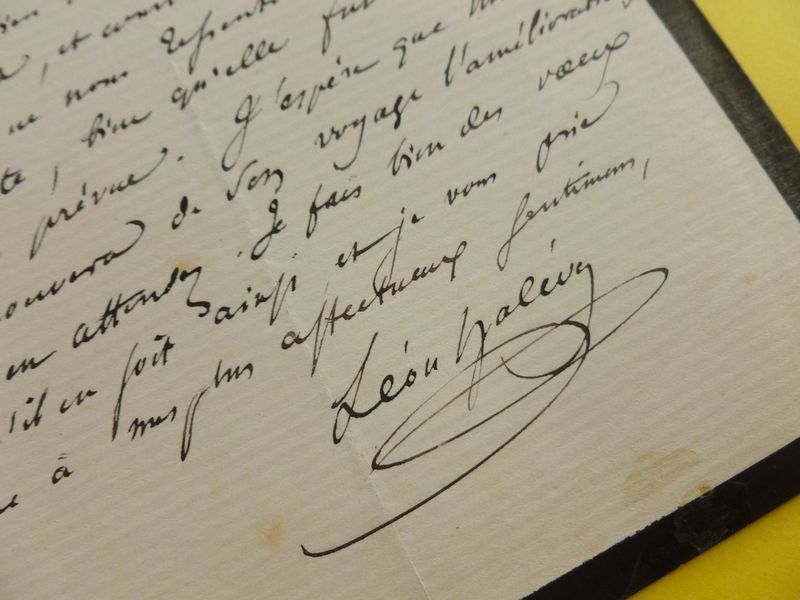 et
ne nous
, bien qu'elle fut
prévue. J'espère que
de son voyage l'amélioration
en attendez. Je fais bien des vœux
s'il en soit ainsi et je vous prie
à mes plus affectueux sentimens,
Léon Halévy